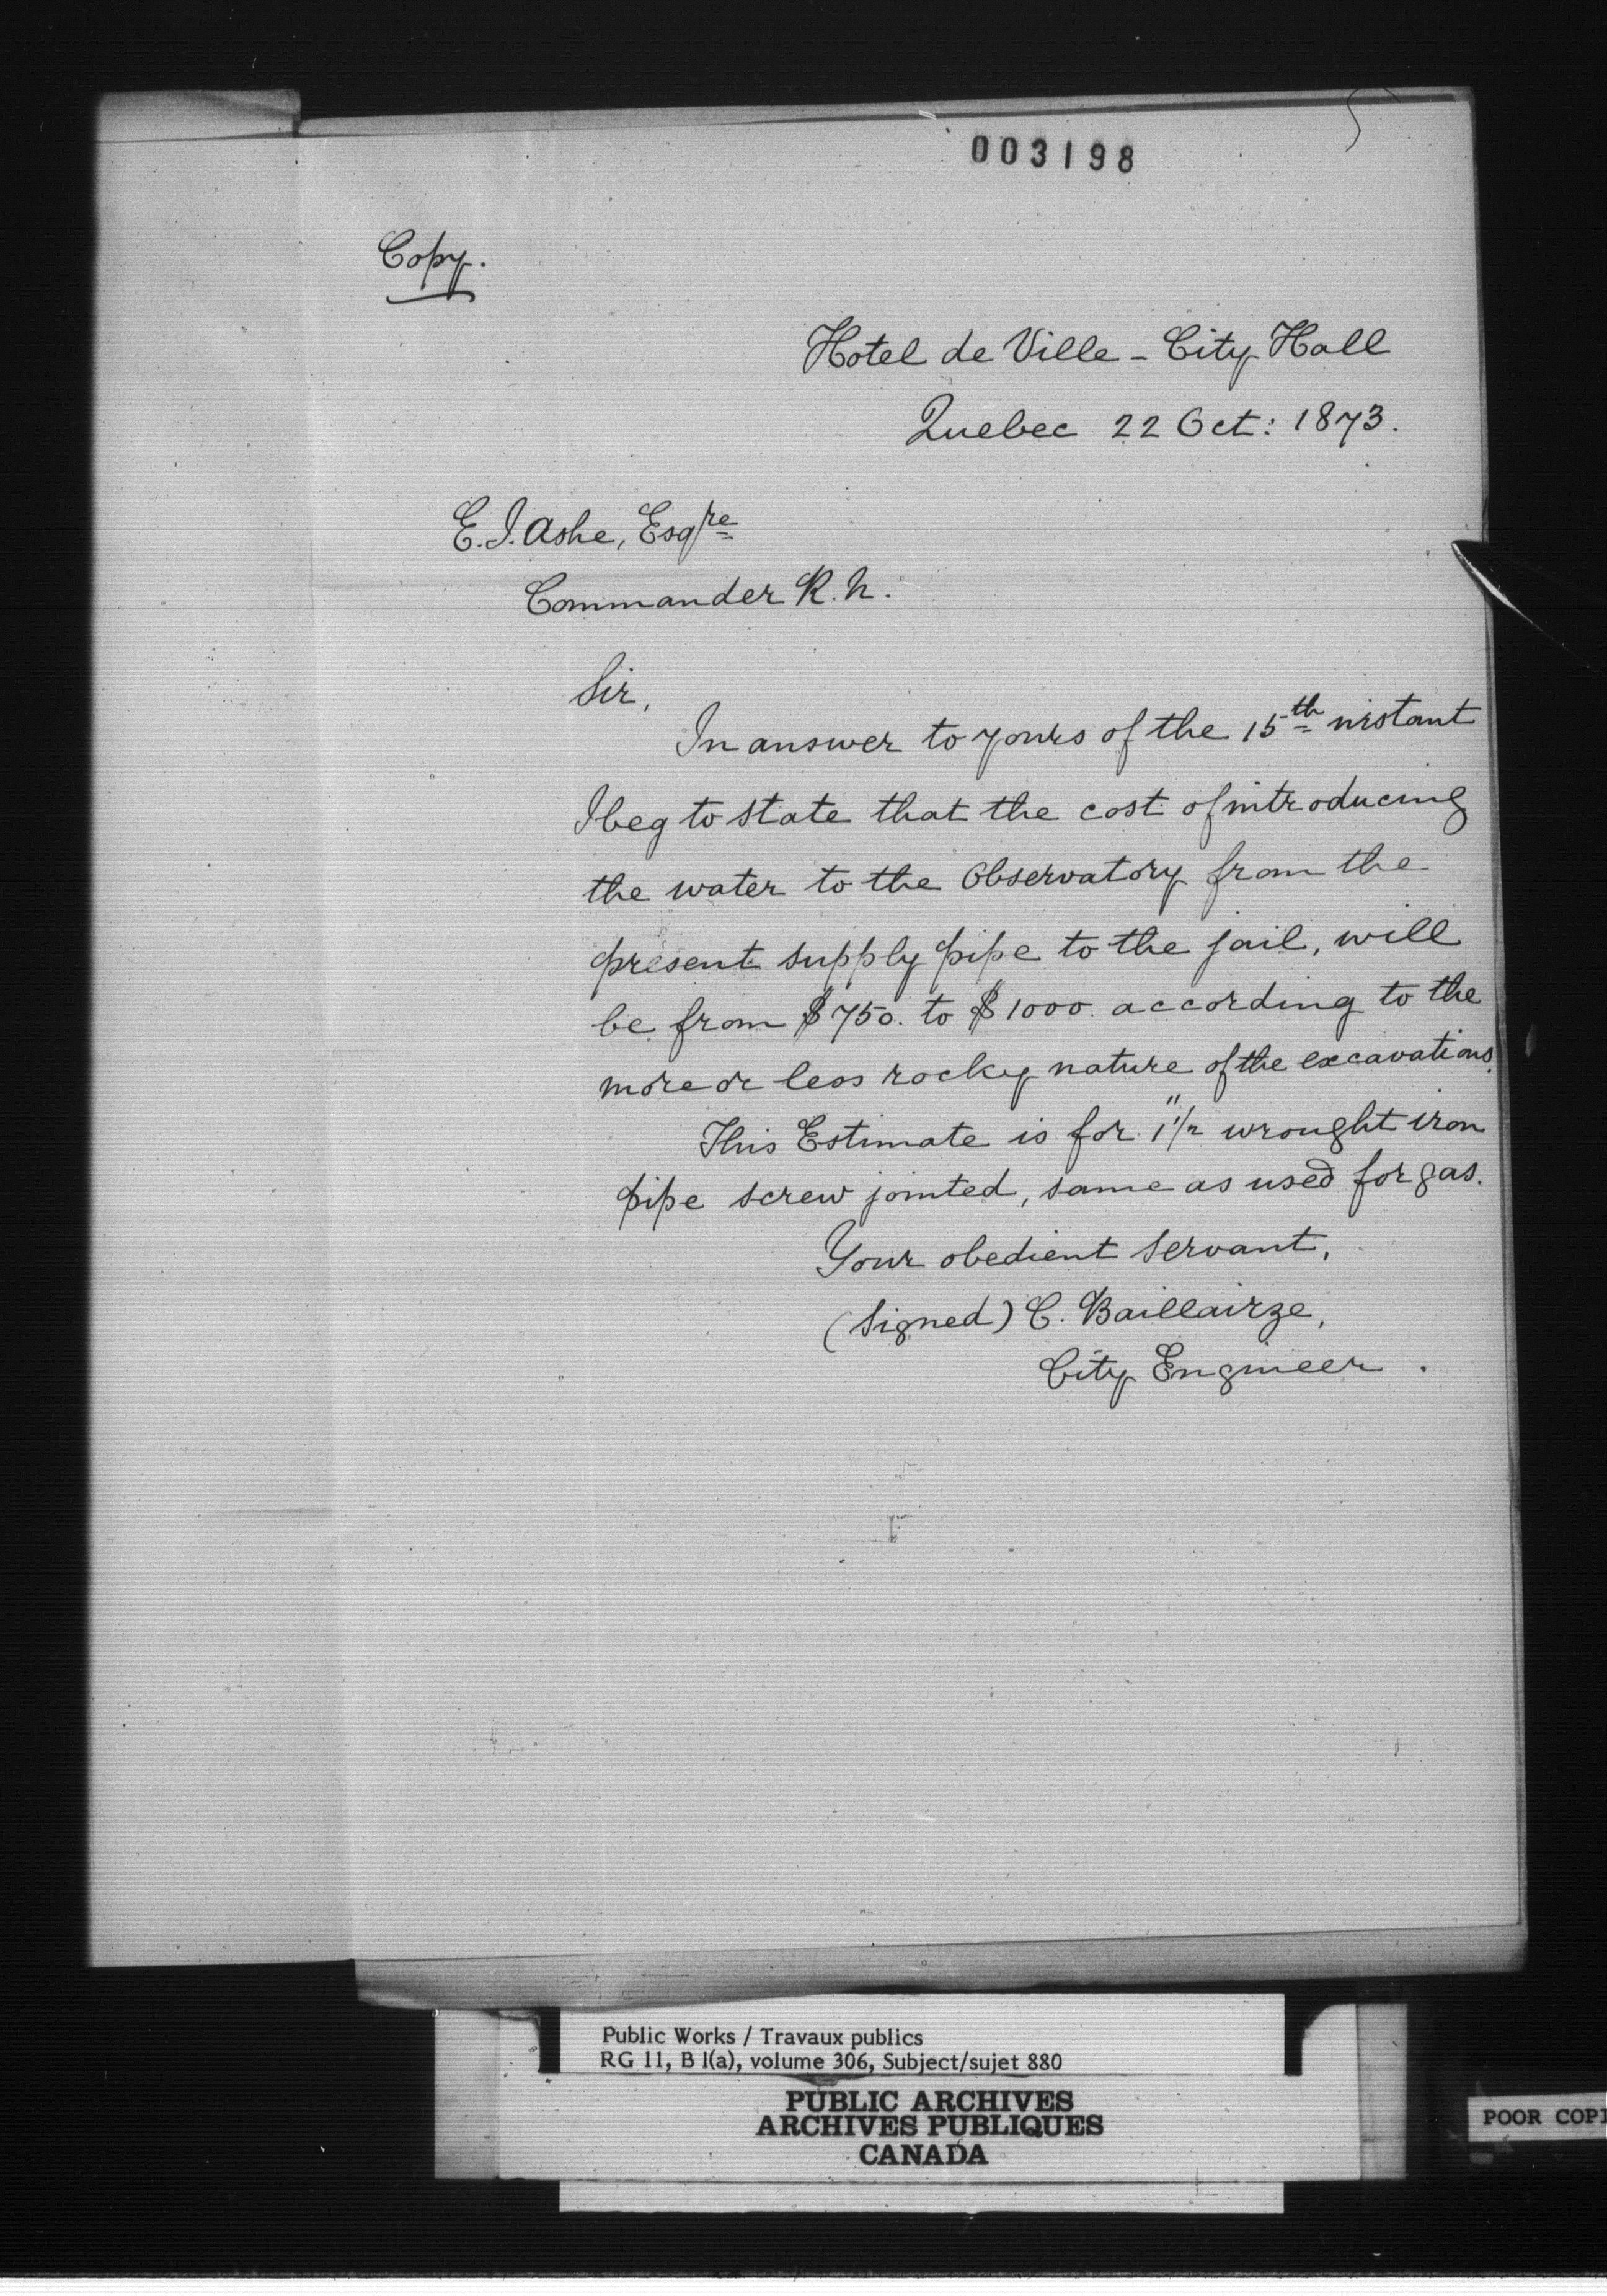 003198
Copy.
Hotel de Ville - City Hall
Quebec 22 Oct: 1873.
E. J. Ashe, Esqre
Commander R. N.
Sir,
In answer to yours of the 15th instant
I beg to state that the cost of introducing
the water to the Observatory from the
present supply pipe to the jail, will
be from $750. to $1000. according to the
more or less rocky nature of the excavations.
This Estimate is for 1"1/2 wrought iron
pipe screw jointed, same as used for gas.
Your obedient servant,
(Signed) C. Baillairge,
City Engineer.
Public Works / Travaux publics
RG 11, B 1(a), volume 306, Subject/sujet 880
PUBLIC ARCHIVES
ARCHIVES PUBLIQUES
CANADA
POOR COPI